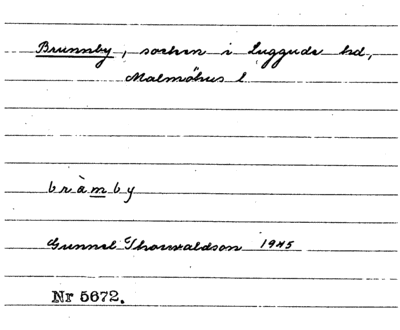 Brunnby, socken i Luggude hd,
Malmöhus l
bràmby
Gunnel Thorwaldson 1945
Nr 5672.